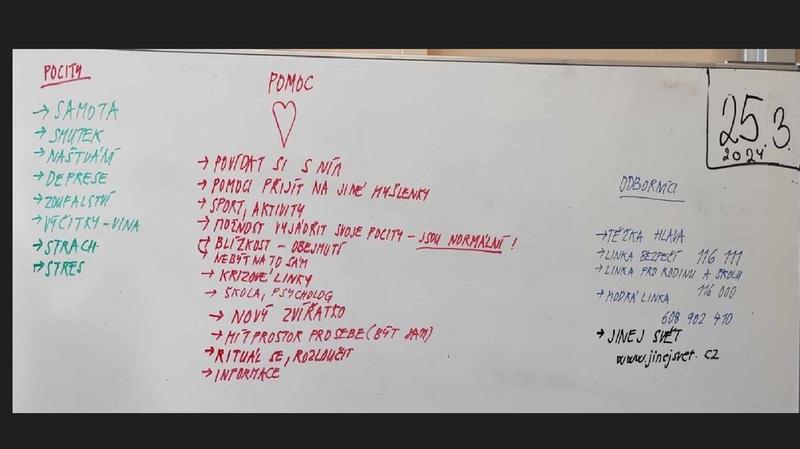 POCITY
→ SAMOTA
→ SMUTEK
→ NAŠTVÁNÍ
→ DEPRESE
→ ZOUFALSTVÍ
→ VÝČITKY - VINA
→ STRACH
→ STRES
POMOC
→ POVÍDAT SI S NÍM
→ POMOCI PŘIJÍT NA JINÉ MYŠLENKY
→ SPORT, AKTIVITY
→ MOŽNOST VYJÁDŘIT SVOJE POCITY - JSOU NORMÁLNÍ!
BLÍZKOST - OBEJMUTÍ
NEBÝT NA TO SÁM
→ KRIZOVÉ LINKY
→ ŠKOLA, PSYCHOLOG
→ NOVÝ ZVÍŘÁTKO
→ MÍT PROSTOR PRO SEBE (BÝT SÁM)
→ RITUÁL SE, ROZLOUČIT
→ INFORMACE
25.3.
2024
ODBORNÍCI
→ TĚŽKÁ HLAVA
→ LINKA BEZPEČÍ 116 111
→ LINKA PRO RODINU A ŠKOLU
116 000
→ MODRÁ LINKA
608 902 410
→ JINEJ SVĚT
www.jinejsvet.cz